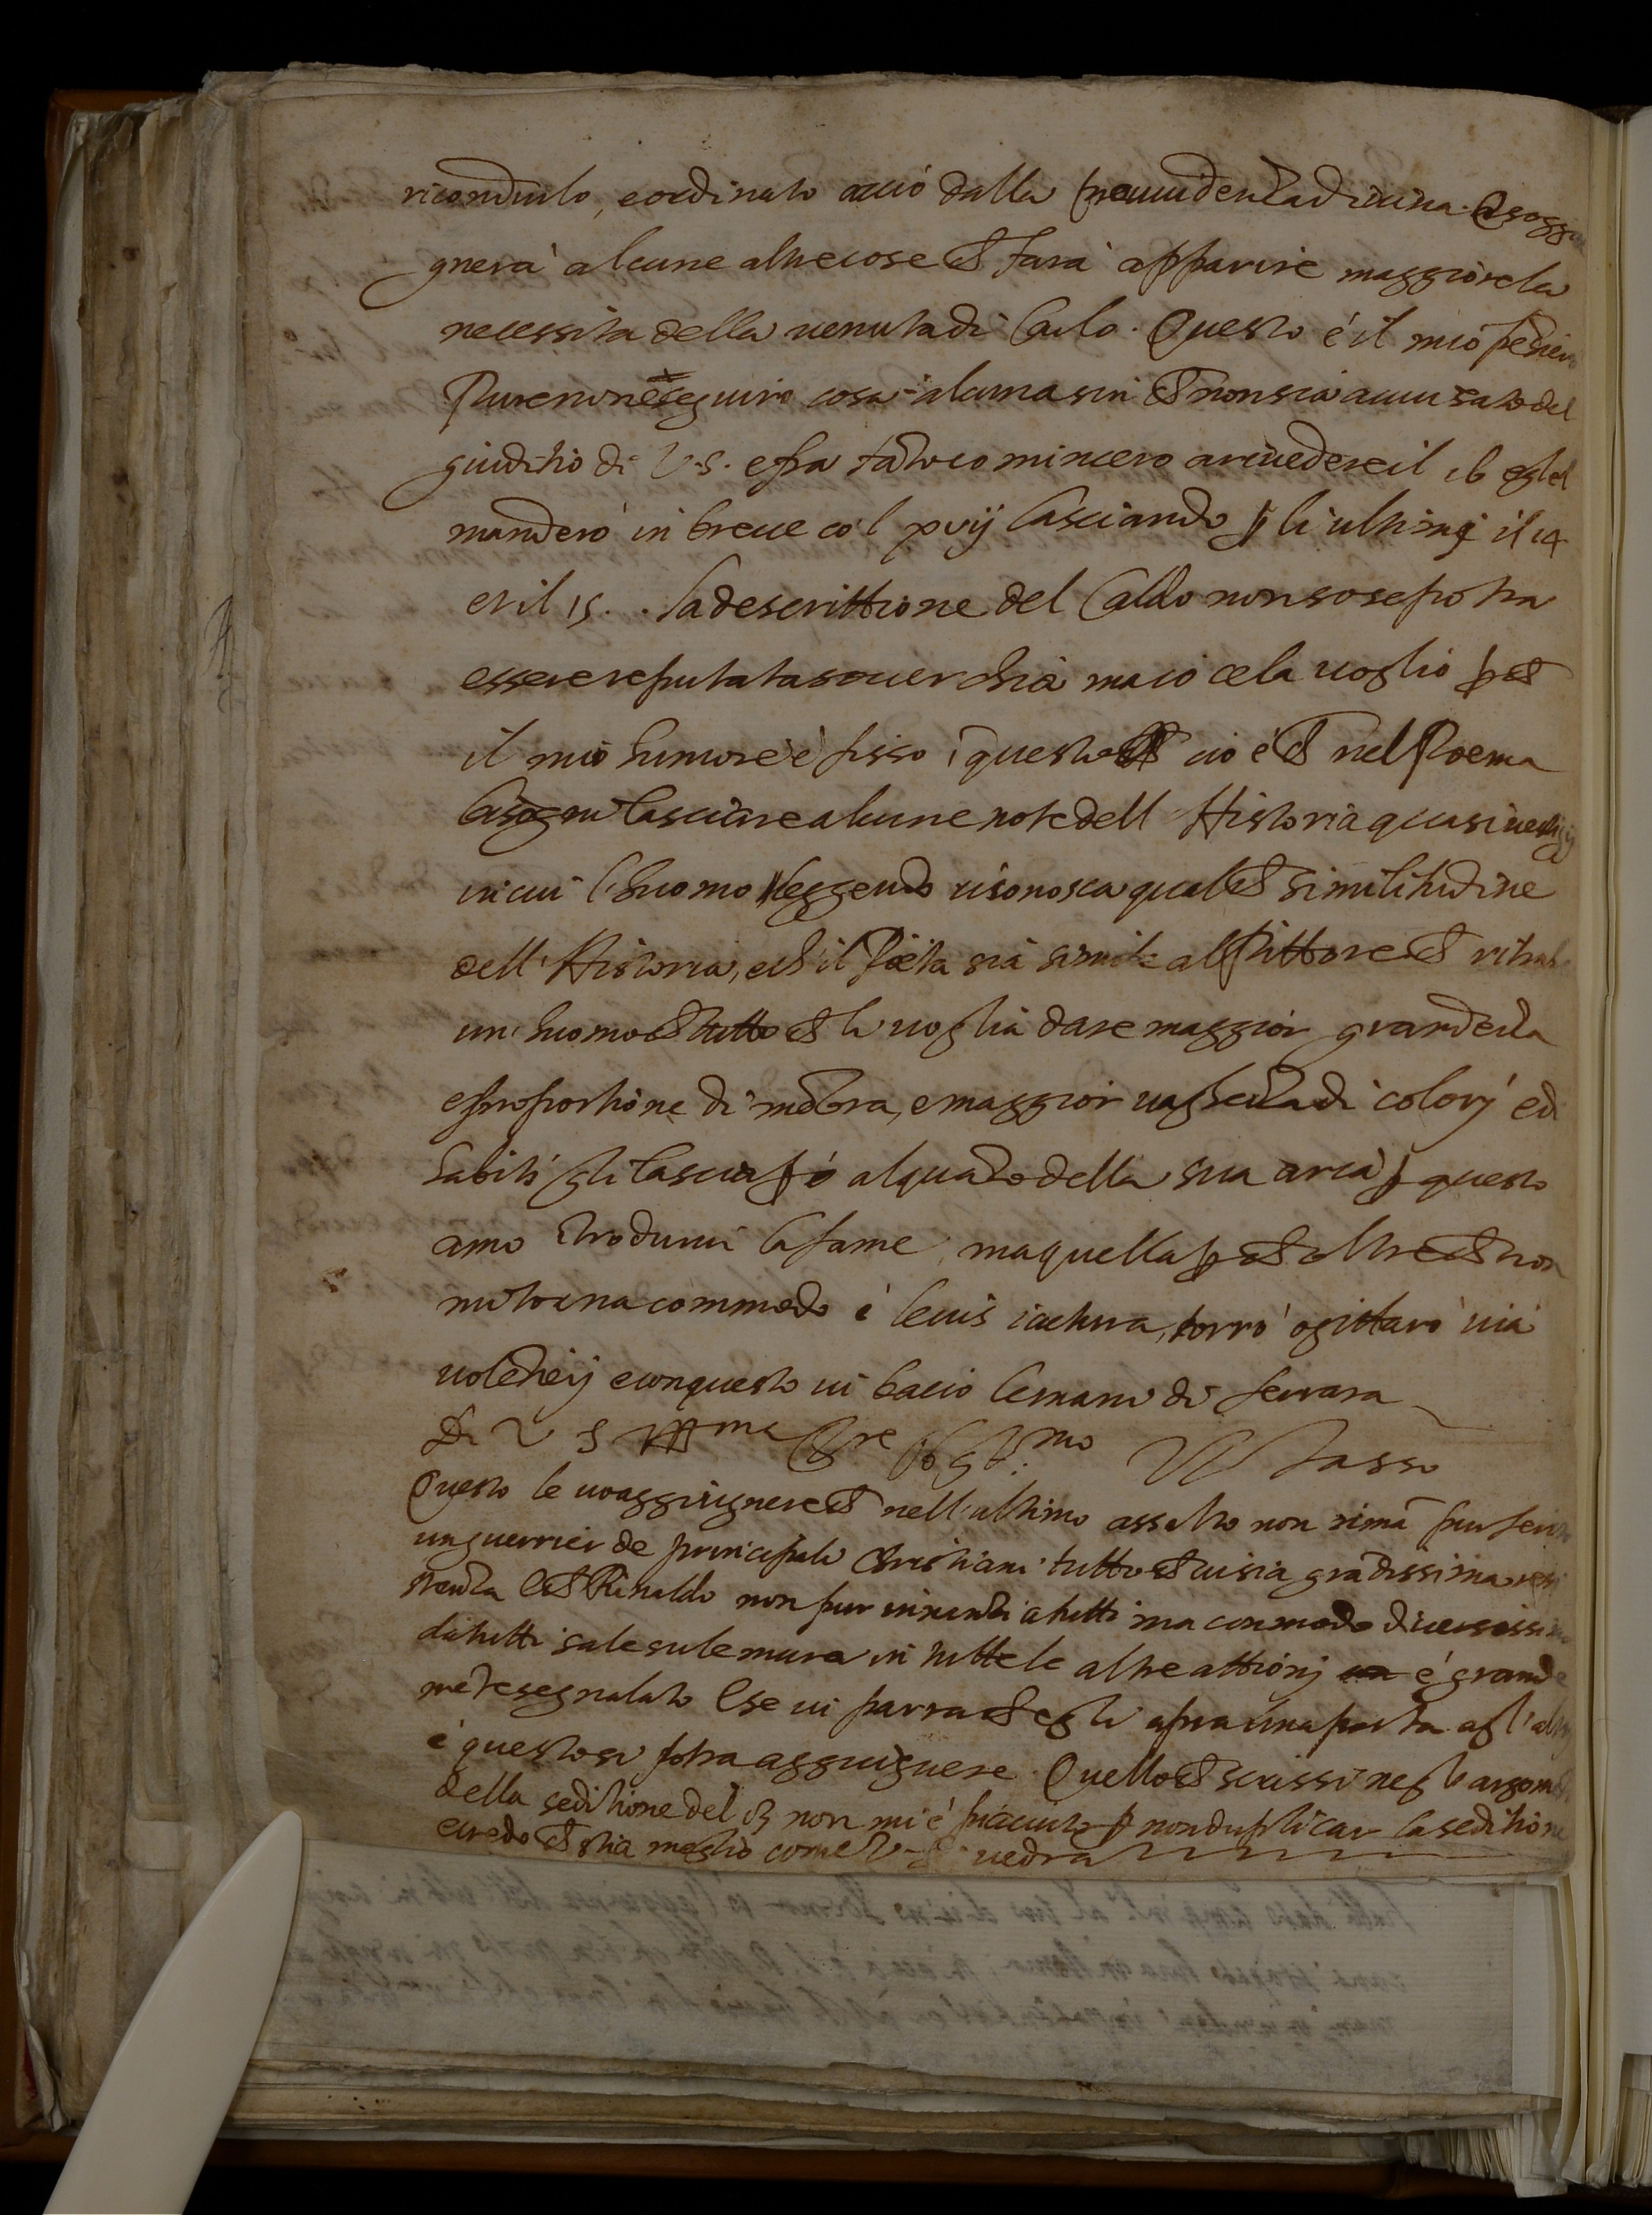 ricondurlo, e ordinato acciò dalla prouuidenza diuina. E soggiu
gnerà alcune altre cose che farà apparire maggiore la
necessità della uenuta di Carlo. Questo è il mio pēsiero
Pure non eseguirò cosa alcuna sin che non sia auuisato del
giuditio di V.S. e fra tāto cominciero a riuedere il 16 e gliel
manderò in breue co'l xvij lasciando p̱ li ultimi il 14
et il 15. la descrittione del Caldo non so se potra
essere reputata souerchia ma io ce la uoglio p̱che
il mio humore è fisso ī questo cio è che nel Poema
bisogni lasciare alcune note dell Historia quasi uestigij
in cui l'huomo leggendo riconosca qualche similitudine
dell'Historia, e ch'il Poeta sia simile al Pittore che ritrahe
un'huomo che tutto che li uoglia dare maggior grandezza
e proportione di mēbra, e maggior uaghezza di colori ed
habiti gli lascia p̱ò alquāto della sua aria p̱ questo
amo ītrodurui la fame, ma quella p̱che oltre che non
mi torna commodo è leuis iactura, torrò o gittarò uia
uolētierj e con questo ui bacio le mani di ferrara
Di V S Ill.ma S.re Tasso
Questo le uo aggiugnere che nell'ultimo assalto non rimā pur ferito
un guerrier de principali Christiani tutto che ui sia grādissima resi
stenza E che Rinaldo non pur inanzi a tutti ma con modo diuersissimo
da tutti sale su le mura in tutte le altre attionj è grande
mēte segnalato E se ui parra che egli apra una porta agl'altrj
e questo si potra aggiugnere. Quello che scrissi negli argomēti
della seditione del 13 non mi è piaciuto p̱ non duplicar la seditione
e credo che stia meglio come V.S. uedrà